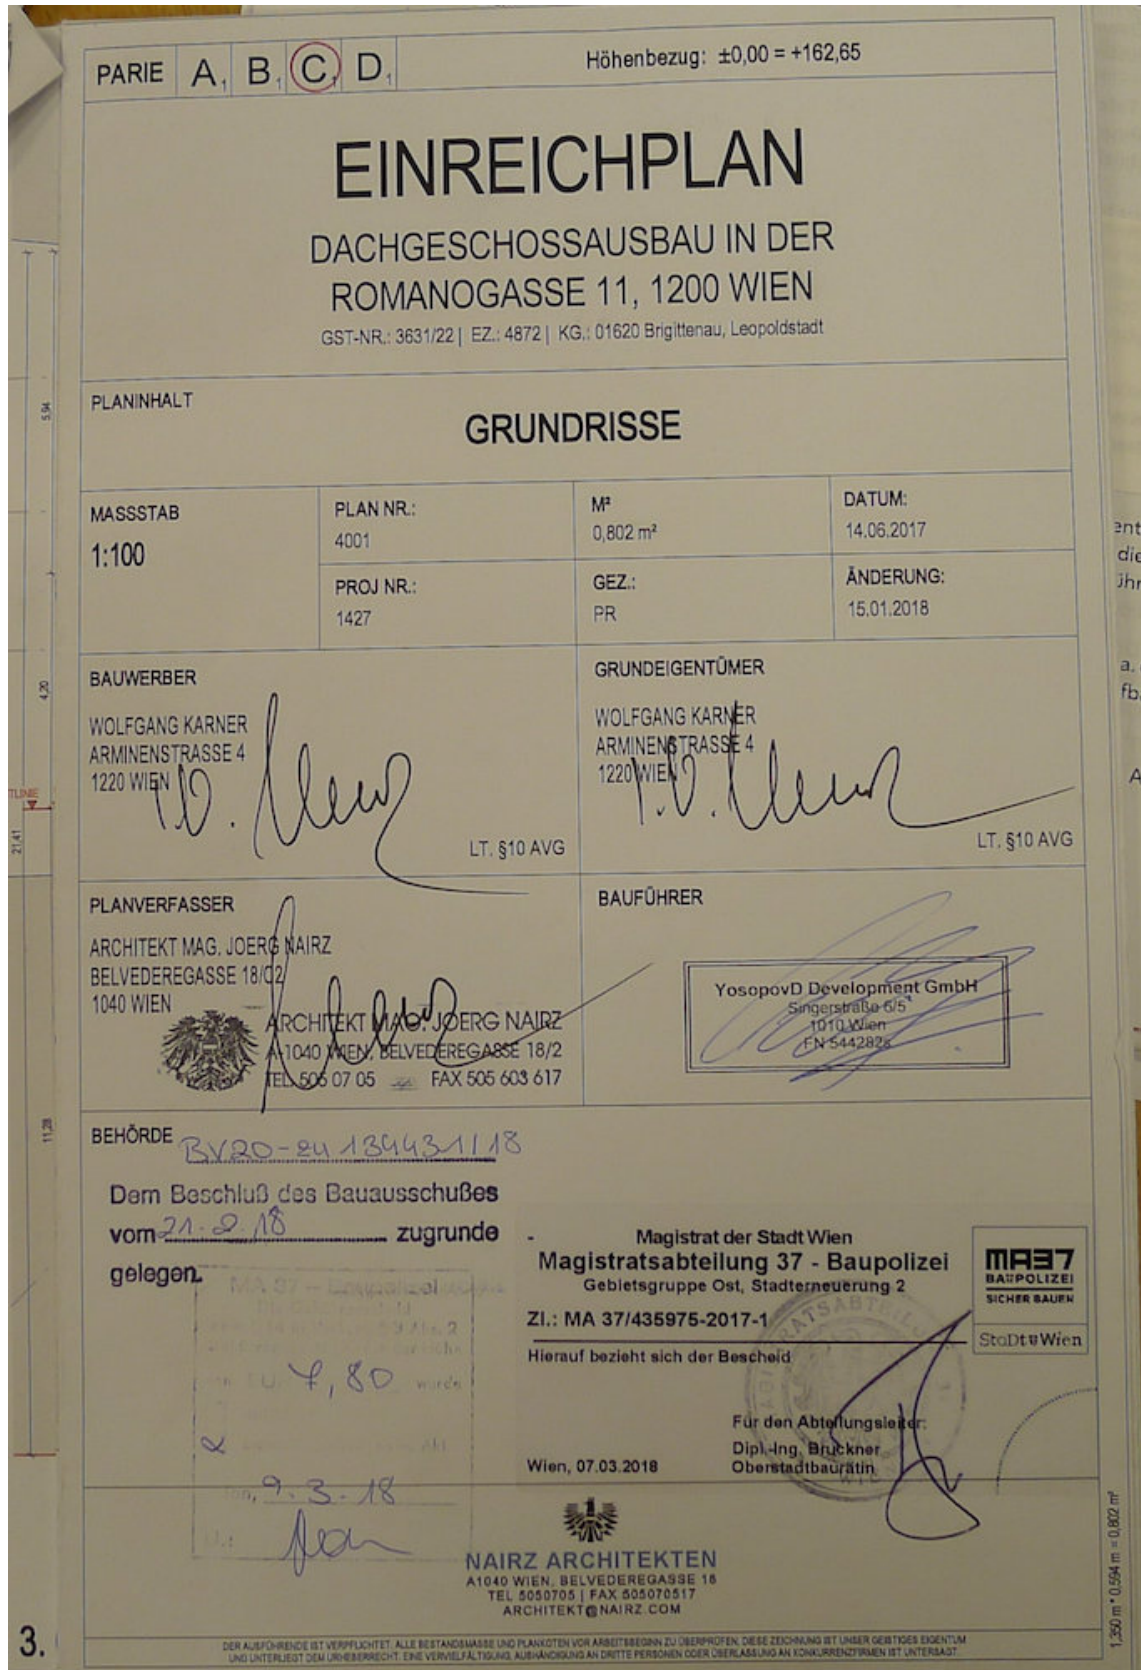 PARIE A1 B1 C1 D1
Höhenbezug: ±0,00 = +162,65
EINREICHPLAN
DACHGESCHOSSAUSBAU IN DER
ROMANOGASSE 11, 1200 WIEN
GST-NR.: 3631/22 | EZ.: 4872 | KG.: 01620 Brigittenau, Leopoldstadt
PLANINHALT
GRUNDRISSE
MASSSTAB
1:100
PLAN NR.:
4001
M²
0,802 m²
DATUM:
14.06.2017
PROJ NR.:
1427
GEZ.:
PR
ÄNDERUNG:
15.01.2018
BAUWERBER
WOLFGANG KARNER
ARMINENSTRASSE 4
1220 WIEN
LT. §10 AVG
GRUNDEIGENTÜMER
WOLFGANG KARNER
ARMINENSTRASSE 4
1220 WIEN
LT. §10 AVG
PLANVERFASSER
ARCHITEKT MAG. JOERG NAIRZ
BELVEDEREGASSE 18/02
1040 WIEN
ARCHITEKT MAG. JOERG NAIRZ
A-1040 WIEN, BELVEDEREGASSE 18/2
TEL 505 07 05 FAX 505 603 617
BAUFÜHRER
YosopovD Development GmbH
Singerstraße 6/5
1010 Wien
FN 544282s
BEHÖRDE
BV20-
Dem Beschluß des Bauausschußes
vom 21.2.18 zugrunde
gelegen.
MA 37 – Baupolizei
7,80 wurde
9.3.18
Magistrat der Stadt Wien
Magistratsabteilung 37 - Baupolizei
Gebietsgruppe Ost, Stadterneuerung 2
Zl.: MA 37/435975-2017-1
Hierauf bezieht sich der Bescheid
Für den Abteilungsleiter:
Dipl.-Ing. Bruckner
Oberstadtbaurätin
Wien, 07.03.2018
MA37
BAUPOLIZEI
SICHER BAUEN
StaDt Wien
NAIRZ ARCHITEKTEN
A1040 WIEN, BELVEDEREGASSE 18
TEL 5050705 | FAX 505070517
ARCHITEKT@NAIRZ.COM
DER AUSFÜHRENDE IST VERPFLICHTET, ALLE BESTANDSMASSE UND PLANKOTEN VOR ARBEITSBEGINN ZU ÜBERPRÜFEN. DIESE ZEICHNUNG IST UNSER GEISTIGES EIGENTUM
UND UNTERLIEGT DEM URHEBERRECHT. EINE VERVIELFÄLTIGUNG, AUSHÄNDIGUNG AN DRITTE PERSONEN ODER ÜBERLASSUNG AN KONKURRENZFIRMEN IST UNTERSAGT.
1,350 m * 0,594 m = 0,802 m²
5,94
4,20
21,41
11,28
3.